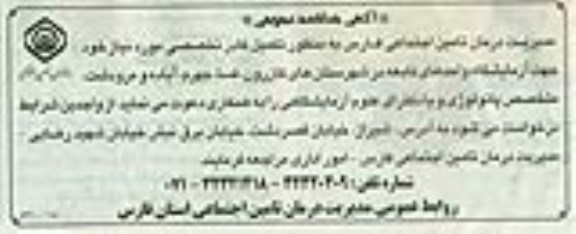 « آگهی مناقصه عمومی »
مدیریت درمان تامین اجتماعی فارس به منظور تامین کادر تخصصی مورد نیاز خود
جهت آزمایشگاه واحدهای تابعه در شهرستان های کازرون، فسا، جهرم، آباده و مرودشت
متخصص پاتولوژی و یا دکترای علوم آزمایشگاهی را به همکاری دعوت می نماید. از واجدین شرایط
درخواست می شود به آدرس: شیراز، خیابان قصردشت، خیابان برق، خیابان شهید رضایی
مدیریت درمان تامین اجتماعی فارس - امور اداری مراجعه فرمایند.
شماره تلفن: ۳۲۳۲۰۳۰۹ - ۰۷۱
روابط عمومی مدیریت درمان تامین اجتماعی استان فارس